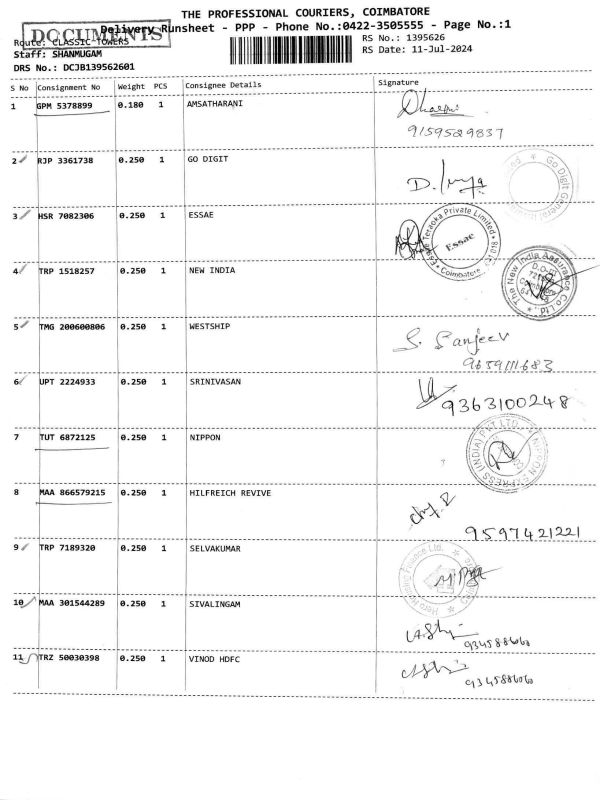 THE PROFESSIONAL COURIERS, COIMBATORE
DOCUMENTS
Delivery Runsheet - PPP - Phone No.:0422-3505555 - Page No.:1
Route: CLASSIC TOWERS
RS No.: 1395626
Staff: SHANMUGAM
RS Date: 11-Jul-2024
DRS No.: DCJB139562601
S No Consignment No Weight PCS Consignee Details Signature
1 GPM 5378899 0.180 1 AMSATHARANI
9159529837
2 RJP 3361738 0.250 1 GO DIGIT
Go Digit General
3 HSR 7082306 0.250 1 ESSAE
Essae Teraoka Private Limited
Essae
Coimbatore
4 TRP 1518257 0.250 1 NEW INDIA
The New India Assurance Co Ltd
5 TMG 200600806 0.250 1 WESTSHIP
S. Sanjeev
9659111683
6 UPT 2224933 0.250 1 SRINIVASAN
9363100248
7 TUT 6872125 0.250 1 NIPPON
NIPPON EXPRESS (INDIA) PVT LTD.
8 MAA 866579215 0.250 1 HILFREICH REVIVE
9597421221
9 TRP 7189320 0.250 1 SELVAKUMAR
Hero Housing Finance Ltd.
10 MAA 301544289 0.250 1 SIVALINGAM
9345886060
11 TRZ 50030398 0.250 1 VINOD HDFC
9345886060